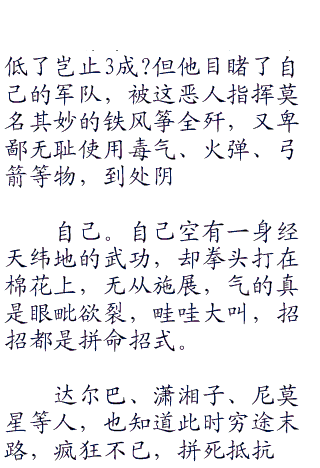 低了岂止3成?但他目睹了自
己的军队，被这恶人指挥莫
名其妙的铁风筝全歼，又卑
鄙无耻使用毒气、火弹、弓
箭等物，到处阴
自己。自己空有一身经
天纬地的武功，却拳头打在
棉花上，无从施展，气的真
是眼毗欲裂，哇哇大叫，招
招都是拼命招式。
达尔巴、潇湘子、尼莫
星等人，也知道此时穷途末
路，疯狂不已，拼死抵抗